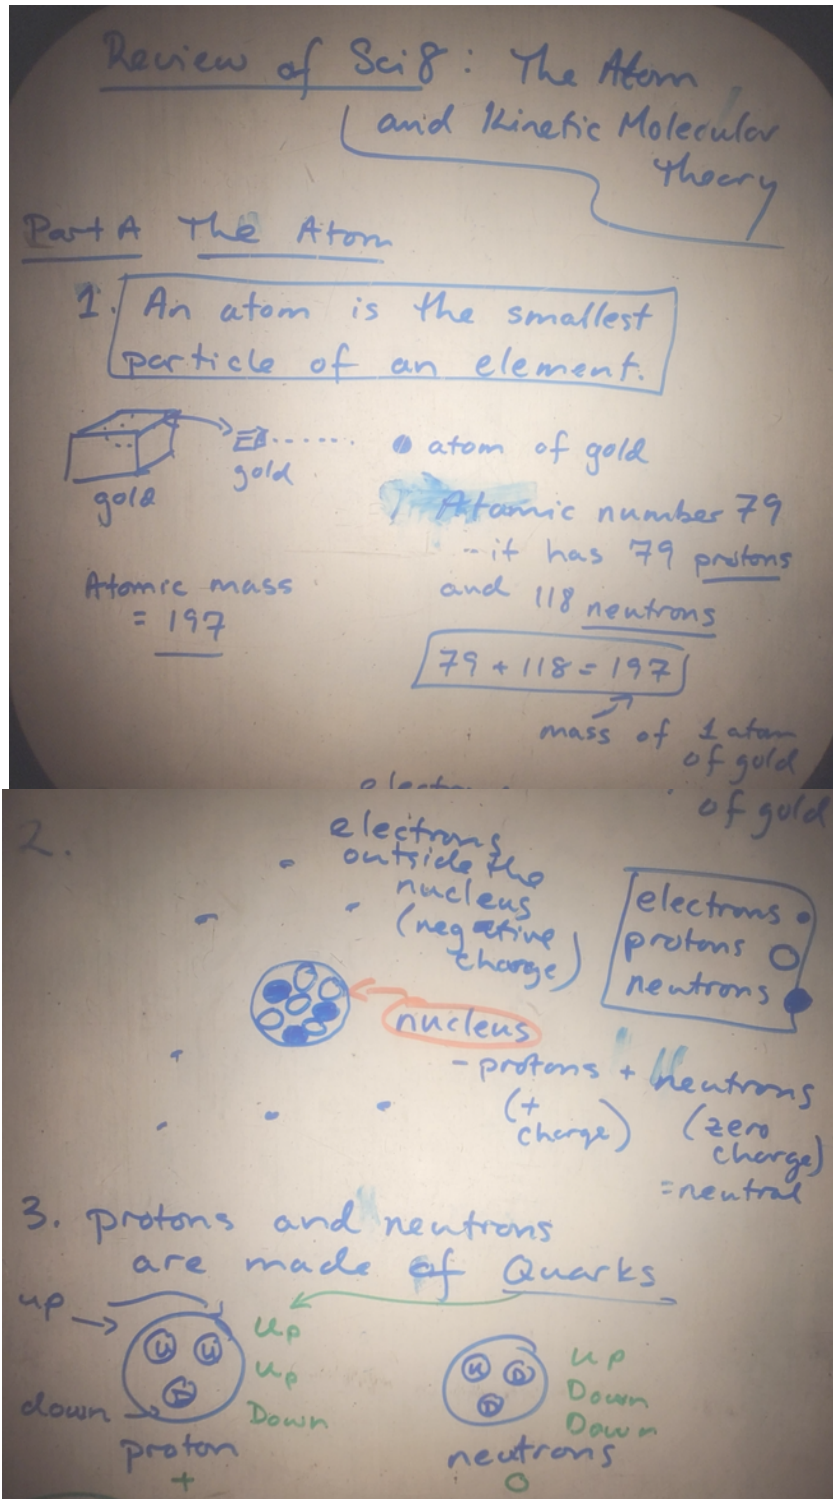 Review of Sci 8: The Atom
and Kinetic Molecular
Theory
Part A The Atom
1. An atom is the smallest
particle of an element.
gold
gold
atom of gold
Atomic number 79
- it has 79 protons
and 118 neutrons
Atomic mass
= 197
79 + 118 = 197
mass of 1 atom
of gold
of gold
2.
electrons
outside the
nucleus
(negative
charge)
electrons
protons
neutrons
nucleus
- protons + neutrons
(+
charge)
(zero
charge)
= neutral
3. protons and neutrons
are made of Quarks
up
down
U U
D
Up
Up
Down
proton
+
U D
D
Up
Down
Down
neutrons
0